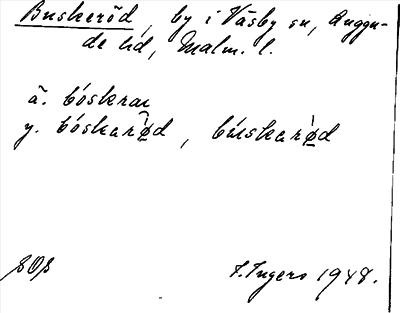 Buskeröd, by i Väsby sn, Luggu-
de hd, Malm. l.
ä. bóskrar
y. bóskarød, búskarød
SOS
I. Ingers 1948.